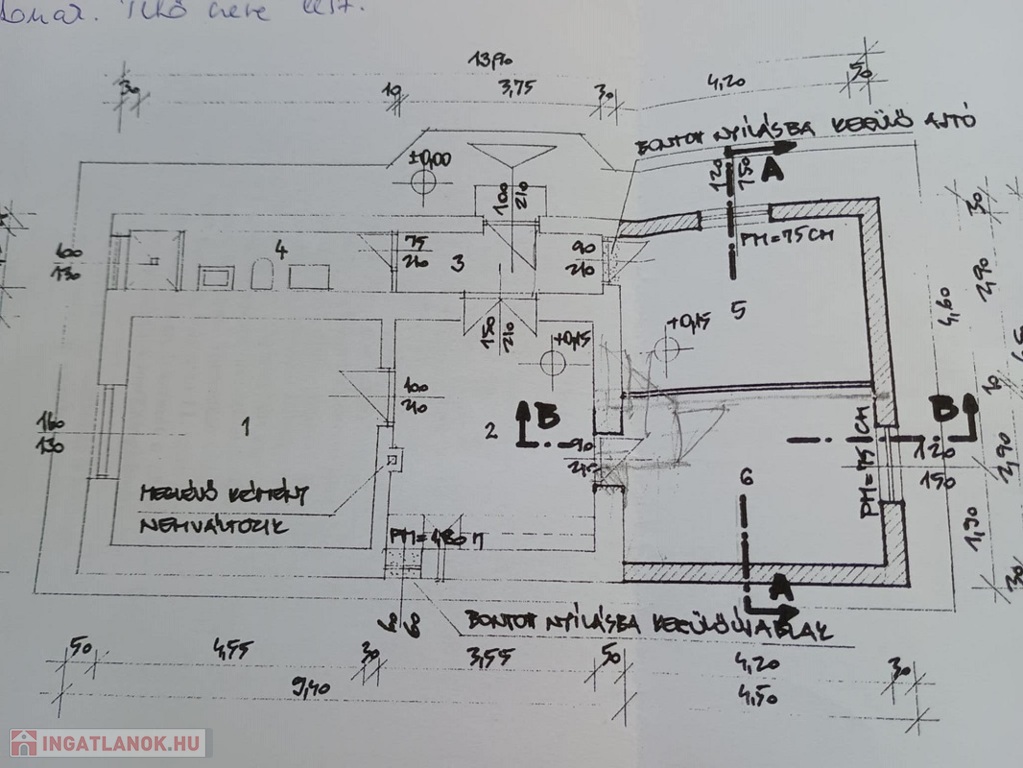 13,90
30
10
3,75
30
4,20
50
BONTOTT NYÍLÁSBA KERÜLŐ AJTÓ
±0,00
A
120
150
100
210
PM=75 CM
30
4
75
210
3
90
210
100
130
2,90
4,60
5
+0,15
+0,15
150
210
10
100
210
1
2
B
B
160
130
90
210
PM=75 CM
120
150
2,90
6
MEGLÉVŐ KÉMÉNY
NEM VÁLTOZIK
1,90
A
30
60
60
BONTOTT NYÍLÁSBA KERÜLŐ ÚJ ABLAK
50
4,55
30
3,55
50
4,20
30
9,40
4,50
INGATLANOK.HU